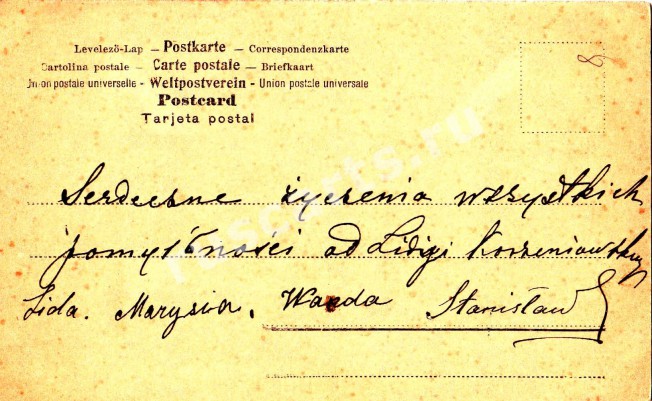 Levelező-Lap – Postkarte – Correspondenzkarte
Cartolina postale – Carte postale – Briefkaart
Union postale universelle - Weltpostverein - Union postale universale
Postcard
Tarjeta postal
8
Serdeczne życzenia wszystkich
pomyślności od Lidji Korzeniowskiej
Lida. Marysia, Wanda Stanisław
ruscarts.ru